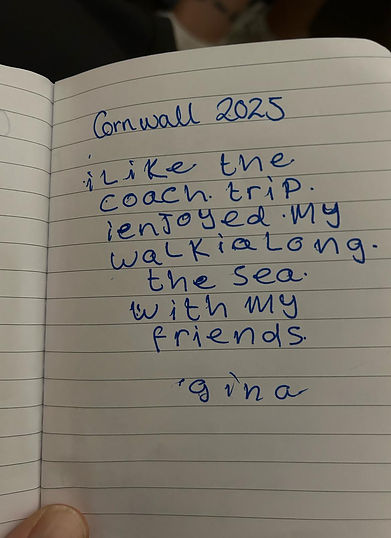 Cornwall 2025
i Like the
coach. trip.
ienjoyed. My
walkialong.
the sea.
with my
friends.
gina